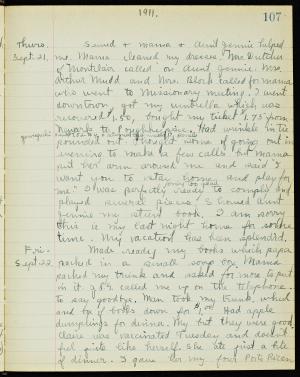 1911.
107
Thurs. Sewed & mama & Aunt Jennie helped
Sept. 21, me. Mama cleaned my dresses. Mrs. Butcher
of Montclair called on Aunt Jennie. Mrs.
Arthur Mudd and Mrs. Block called for mama
who went to Missionary meeting. I went
downtown, got my umbrella which was
recovered $1.50, bought my ticket 1.75 from
Newark to Poughkeepsie. Had wrinkle in tie
pounded out. I thought some of going out in
evening to make a few calls but mama
put her arm around me and said "I
want you to stay home and play for
me." I was perfectly ready to comply and
played several pieces. I showed Aunt
Jennie my stunt book. I am sorry
this is my last night home for some
time. My vacation has been splendid.
Fri. Made ready my books which papa
Sept. 22 packed in a small box. Mama
packed my trunk and asked for more to put
in it. called me up on the telephone
to say goodbye. Man took my trunk, wheel
and box of books down for $1.00. Had apple
dumplings for dinner. My but they were good.
Claire was vaccinated Tuesday and doesn't
feel quite like herself. She ate just a bit
of dinner. I gave her my four Polo